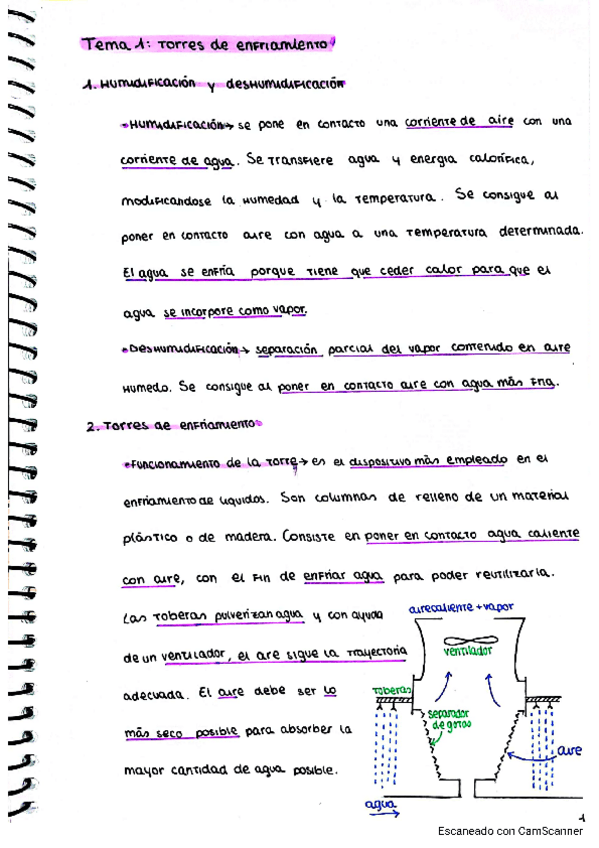 Tema 1: Torres de enfriamiento
1. Humidificación y deshumidificación
• Humidificación → se pone en contacto una corriente de aire con una
corriente de agua. Se transfiere agua y energía calorífica,
modificandose la humedad y la temperatura. Se consigue al
poner en contacto aire con agua a una temperatura determinada.
El agua se enfría porque tiene que ceder calor para que el
agua se incorpore como vapor.
• Deshumidificación → separación parcial del vapor contenido en aire
humedo. Se consigue al poner en contacto aire con agua más fria.
2. Torres de enfriamiento
• Funcionamiento de la torre → es el dispositivo más empleado en el
enfriamiento de liquidos. Son columnas de relleno de un material
plástico o de madera. Consiste en poner en contacto agua caliente
con aire, con el fin de enfriar agua para poder reutilizarla.
Las toberas pulverizan agua y con ayuda
de un ventilador, el aire sigue la trayectoria
adecuada. El aire debe ser lo
más seco posible para absorber la
mayor cantidad de agua posible.
aire caliente + vapor
ventilador
toberas
separador
de gotas
aire
agua
1
Escaneado con CamScanner